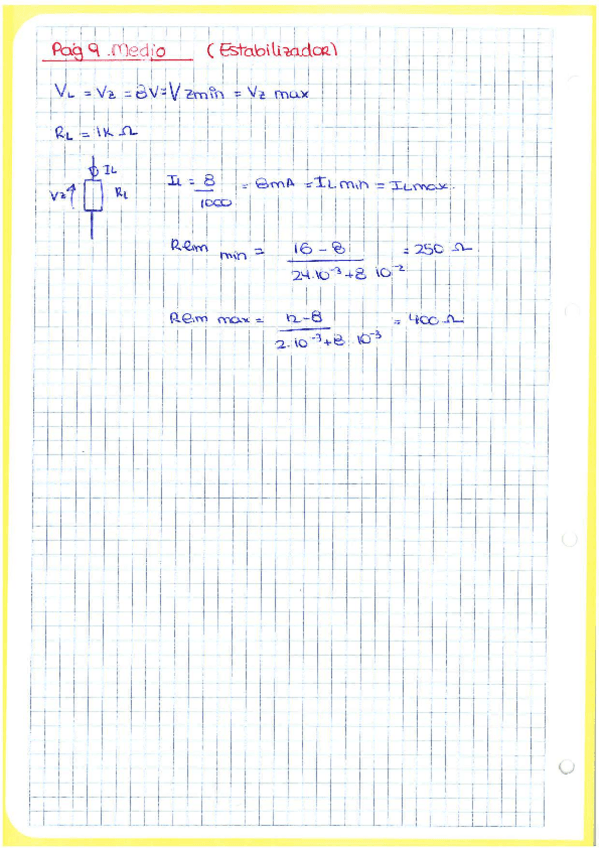 Pag 9 .Medio (Estabilizador)
VL = Vz = 8V = Vzmin = Vz max
RL = 1K Ω
IL
Vz RL
IL = 8/1000 = 8mA = ILmin = ILmax.
Rlim min = 16 - 8 / 24.10⁻³+8 10⁻² = 250 Ω
Rlim max = 12-8 / 2.10⁻³+8 10⁻³ = 400 Ω